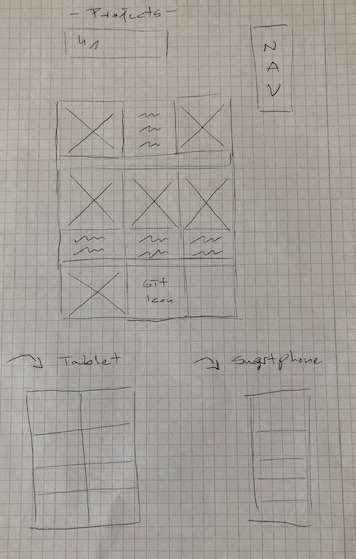 - Projects -
h1
N
A
V
GIT
Icon
Tablet
Smartphone